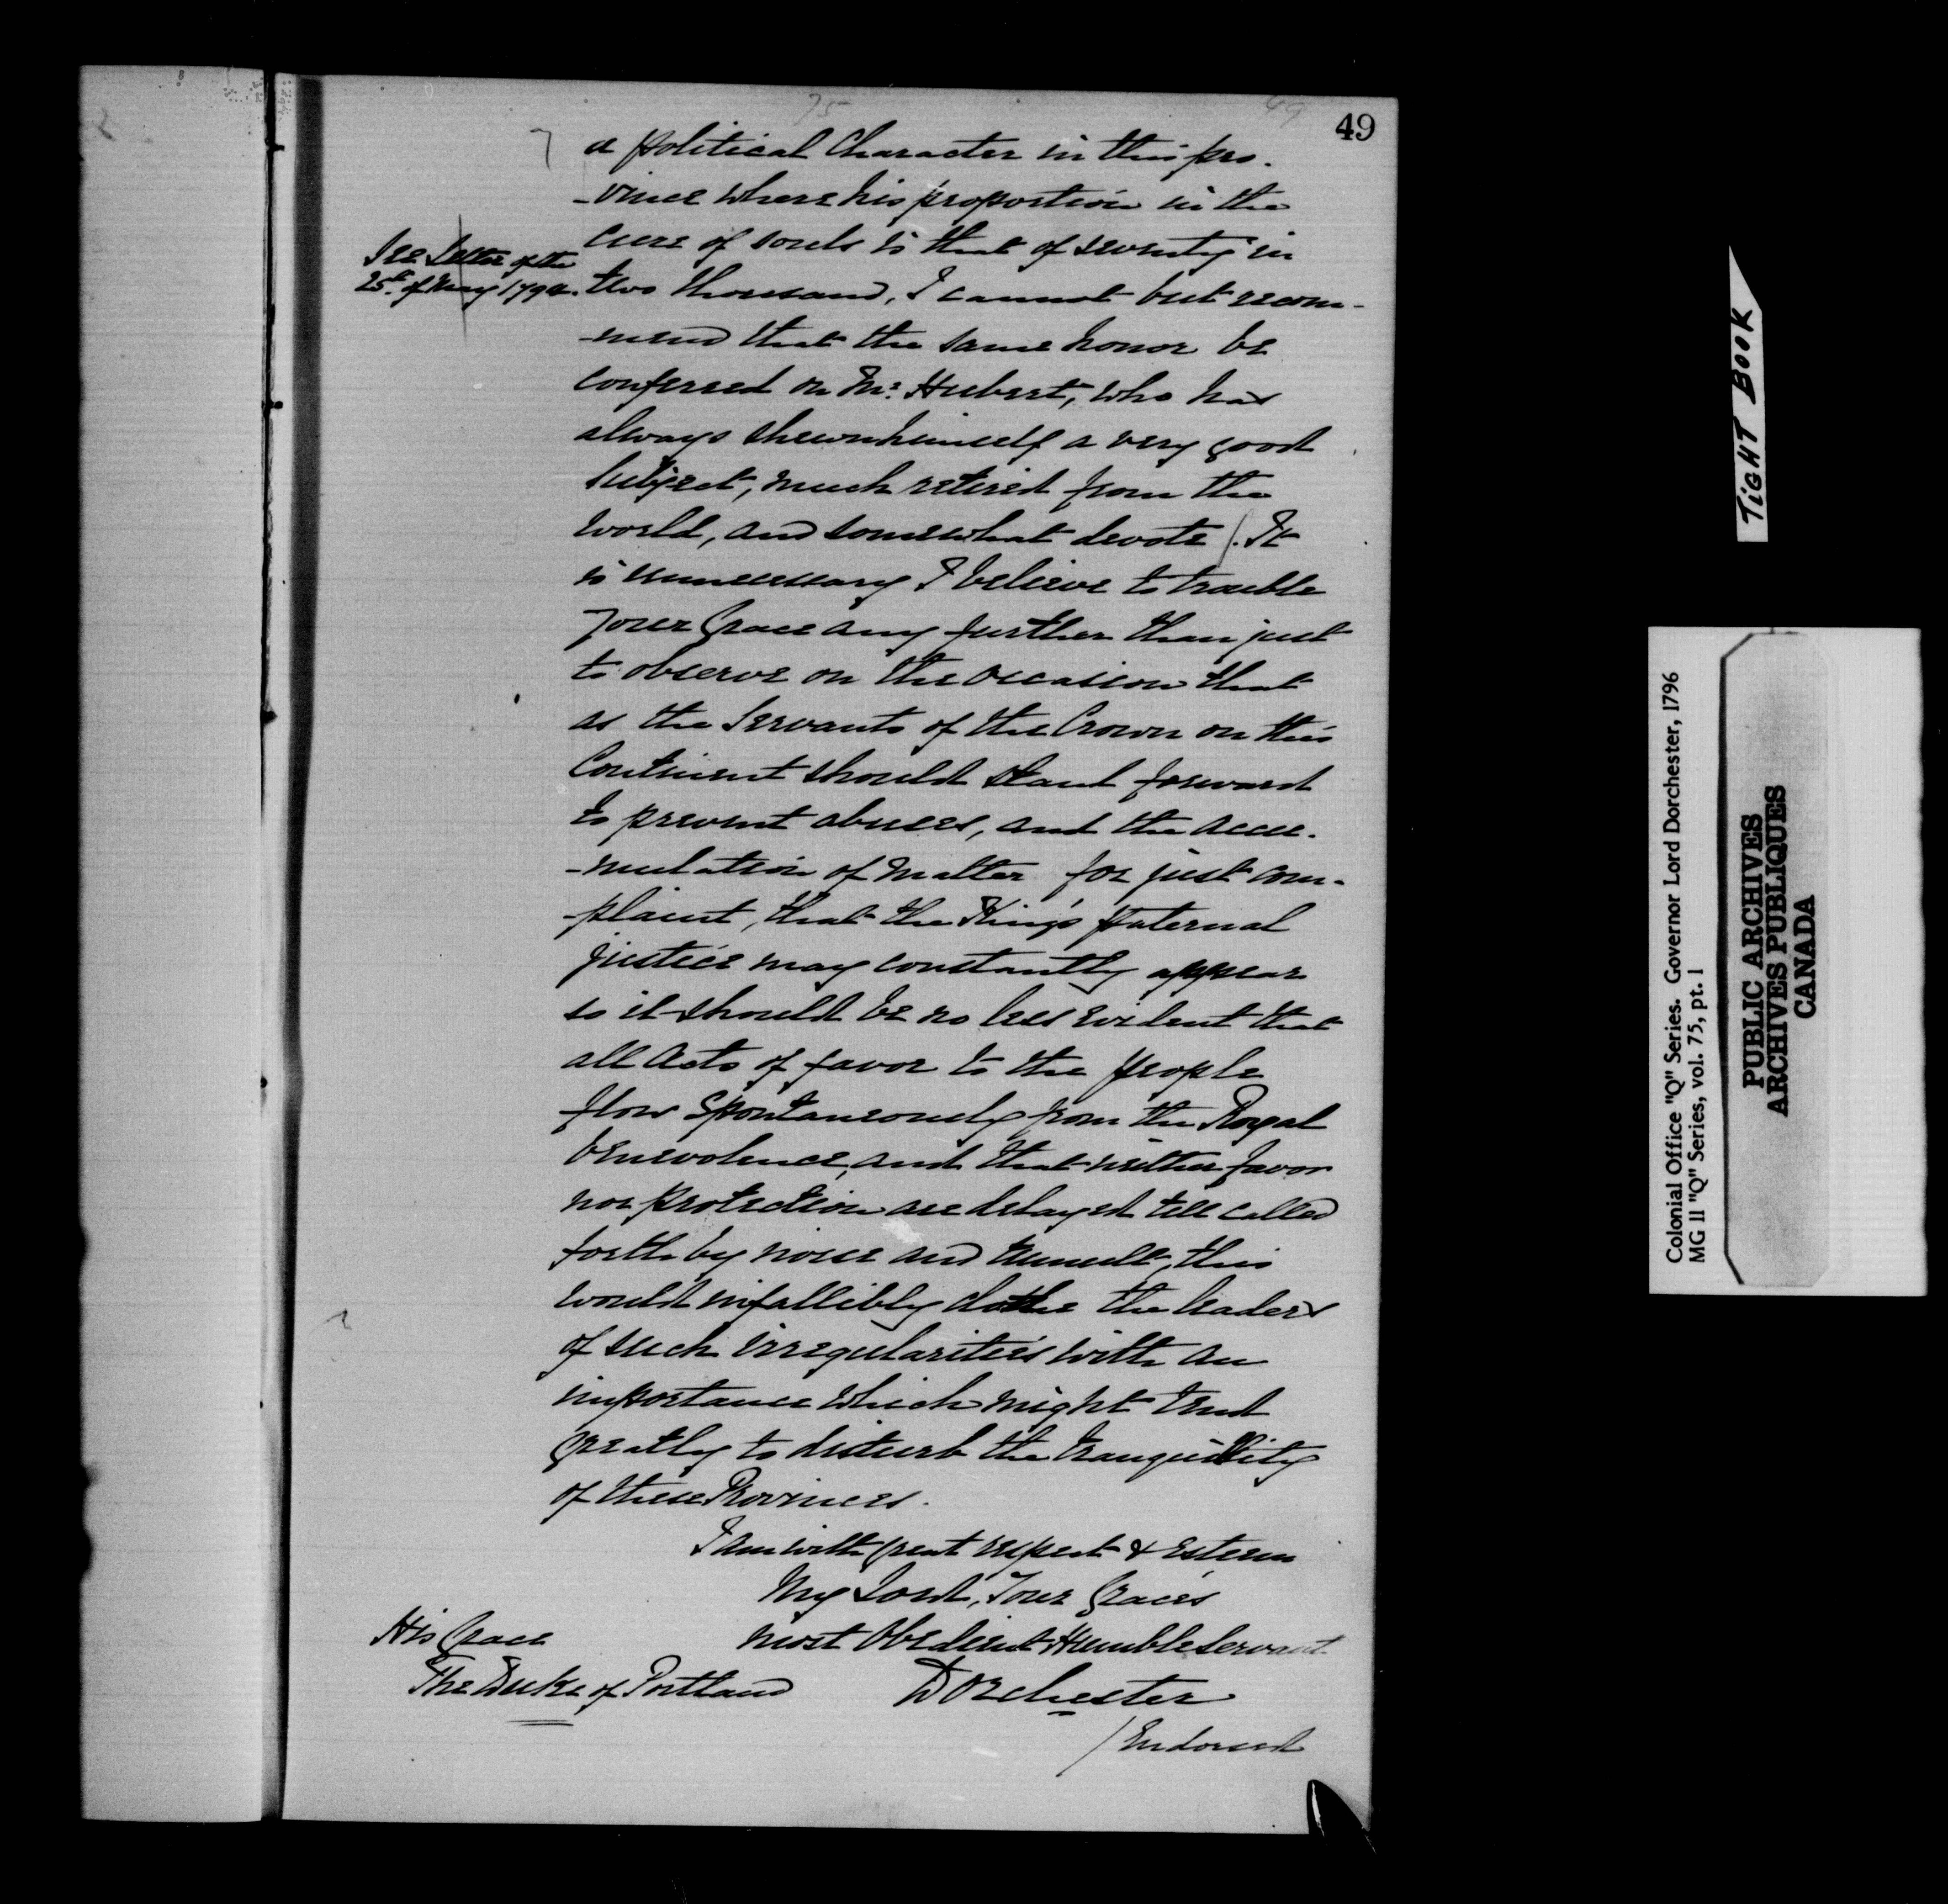 75
49
49
a political Character in this pro-
-vince where his proportion in the
cure of souls is that of seventy in
See Letter of the
25th of May 1794.
two thousand, I cannot but recom-
-mend that the same honor be
conferred on Mr. Hubert, who has
always shewn himself a very good
Subject, much retired from the
World, and somewhat devote /. It
is unnecessary I believe to trouble
Your Grace any further than just
to observe on the occasion that
as the Servants of the Crown on this
Continent should stand forward
to prevent abuses, and the accu-
-mulation of matter for just com-
-plaint, that the King's paternal
justice may constantly appear
so it should be no less evident that
all Acts of favor to the people
flow spontaneously from the Royal
benevolence, and that neither favor
nor protection are delayed till called
forth by noise and tumult, this
would infallibly clothe the leaders
of such irregularities with an
importance which might tend
greatly to disturb the tranquillity
of these Provinces.
I am with great respect & Esteem
My Lord, Your Grace's
most Obedient Humble Servant
His Grace
The Duke of Portland
Dorchester
/ Endorsed
TIGHT BOOK
Colonial Office "Q" Series. Governor Lord Dorchester, 1796
MG 11 "Q" Series, vol. 75, pt. 1
PUBLIC ARCHIVES
ARCHIVES PUBLIQUES
CANADA